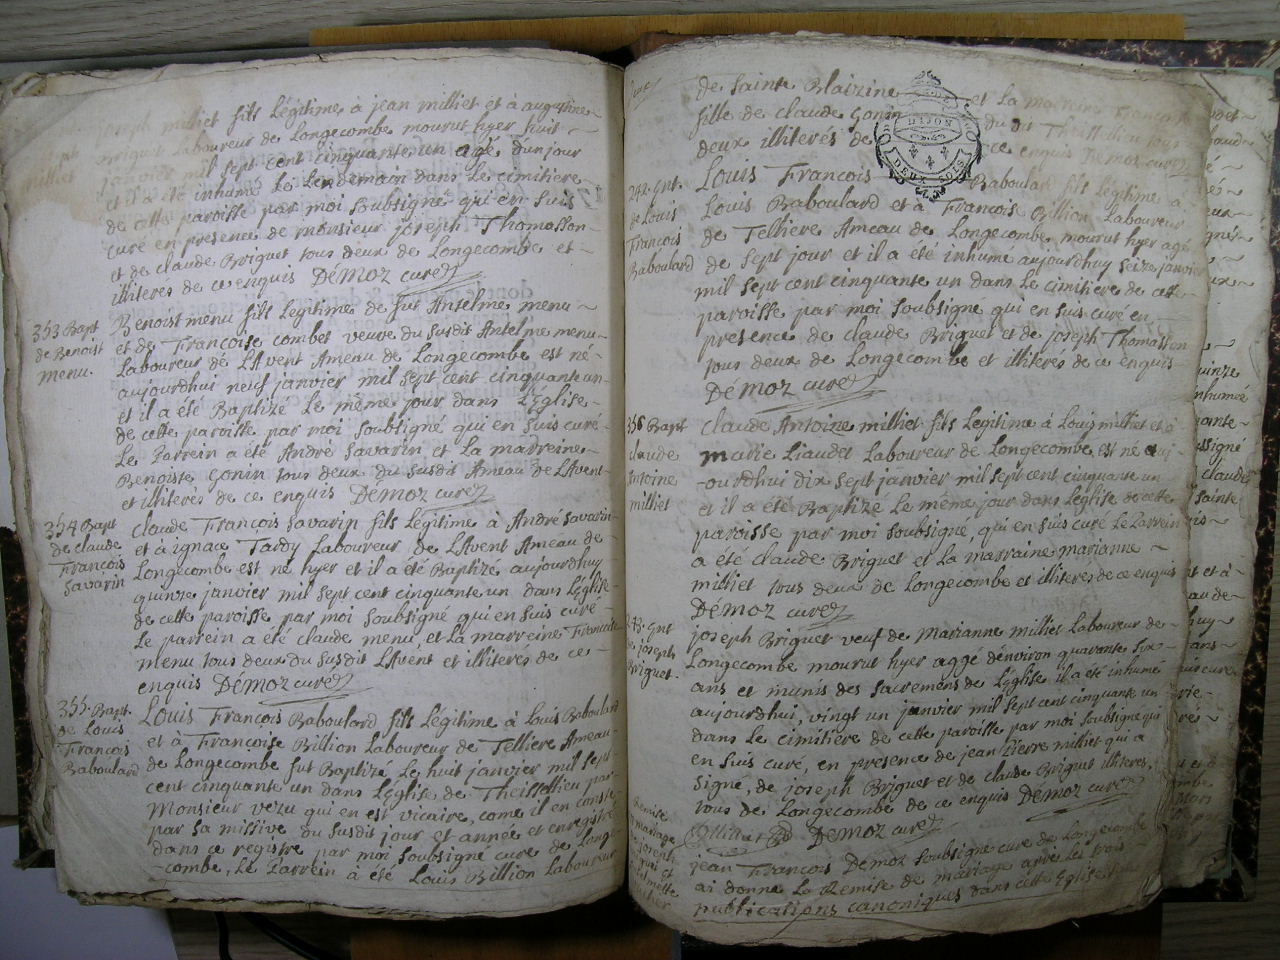 joseph milliet fils Légitime à jean milliet et à augustine
Briguet Laboureur de Longecombe mourut hyer huit
janvier mil sept cent cinquante un agé dunjour
et il a été inhumé Le Lendemain dans Le cimitiere
de cette paroisse par moi soubsigné qui en suis
curé en presence de monsieur joseph Thomasson
et de claude Briguet tous deux de Longecombe et
illiterés de ce enquis DéMoz curé
353 Bapt
de Benoist
menu.
Benoist menu fils Legitime de fut Antelme menu
et de Françoise combet veuve du susdit Antelme menu
Laboureur de LAvent Ameau de Longecombe est né
aujourdhui neuf janvier mil sept cent cinquante un
et il a été Baptizé Le même jour dans LÉglise
de cette paroisse par moi soubsigné qui en suis curé
Le Parrein a été André Savarin et La marreine
Benoiste Gonin tous deux du susdit Ameau de LAvent
et illiterés de ce enquis DéMoz curé
354 Bapt
de claude
François
Savarin
Claude François Savarin fils Légitime à André Savarin
et à ignace Tardy Laboureur de LAvent Ameau de
Longecombe est né hyer et il a été Baptizé aujourdhuy
quinze janvier mil sept cent cinquante un dans LÉglise
de cette paroisse par moi soubsigné qui en suis curé
Le parrein a été claude menu et La marreine Françoise
menu tous deux du susdit LAvent et illiterés de ce
enquis DéMoz curé
355. Bapt.
de Louis
François
Baboulard
Louis François Baboulard fils Légitime à Louis Baboulard
et à Françoise Billion Laboureur de Telliere Ameau
de Longecombe fut Baptizé Le huit janvier mil sept
cent cinquante un dans LÉglise de Theissellieu par
Monsieur vezu qui en est vicaire, come il en conste
par sa missive du susdit jour et année et enregistré
dans ce registre par moi soubsigné curé de Longe
combe, Le Parrein a été Louis Billion Laboureur
de sainte Blaizine et La marreine Françoise
fille de claude Gonin du dit Theissellieu tous
deux illiterés de ce enquis DéMoz curé
DIJON
DEUX SOLS
242. Ent.
de Louis
François
Baboulard
Louis François Baboulard fils Légitime à
Louis Baboulard et à François Billion Laboureur
de Telliere Ameau de Longecombe mourut hyer agé
de sept jour et il a été inhumé aujourdhuy seize janvier
mil sept cent cinquante un dans Le cimitiere de cette
paroisse par moi soubsigné qui en suis curé en
presence de claude Briguet et de joseph Thomasson
tous deux de Longecombe et illiterés de ce enquis
DéMoz curé
356 Bapt
claude
Antoine
milliet
Claude Antoine milliet fils Legitime à Louis milliet et à
marie Liaudet Laboureur de Longecombe est né auj
ourdhui dix sept janvier mil sept cent cinquante un
et il a été Baptizé Le même jour dans Léglise de cette
paroisse par moi soubsigné, qui en suis curé Le Parrein
a été claude Briguet et La marraine marianne
milliet tous deux de Longecombe et illiterés de ce enquis
DéMoz curé
243. Ent
de joseph
Briguet
joseph Briguet veuf de Marianne milliet Laboureur de
Longecombe mourut hyer aggé dénviron quarante six
ans et munis des sacremens de LÉglise il a été inhumé
aujourdhui, vingt un janvier mil sept cent cinquante un
dans Le cimitiere de cette paroisse par moi soubsigné qui
en suis curé, en présence de jean Pierre milliet qui a
signé, de joseph Briguet et de claude Briguet illiteres,
tous de Longecombe de ce enquis DéMoz curé
Milliat DéMoz curé
Remise
de mariage
de joseph
jean François Démoz soubsigné curé de Longecombe
ai donné La Remise de mariage après Les trois
publications canoniques dans cette Église